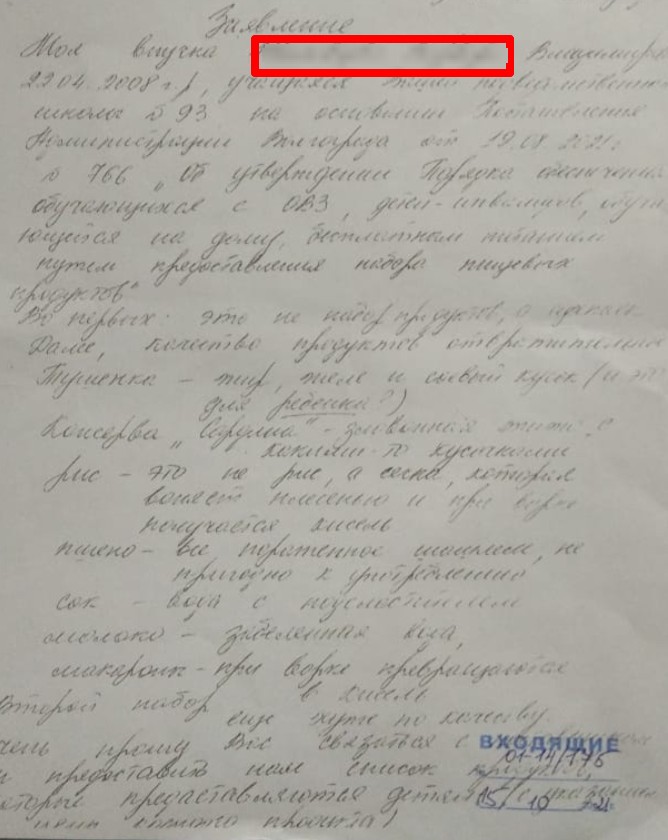 Заявление
Моя внучка Владимировна
22.04.2008 г.), учащаяся Вашей
школы № 93 на основании Постановления
Администрации Волгограда от 19.08.2021г
№ 766 „Об утверждении Порядка обеспечения
обучающихся с ОВЗ, детей-инвалидов, обуча
ющихся на дому, бесплатным питанием
путем предоставления набора пищевых
продуктов"
Во первых: это не набор продуктов, а
Даме, качество продуктов отвратительное
Тушенка – жир, желе и соевый кусок (и это
для ребенка?)
Консерва „Сардина" – жижа с
какими-то кусочками
рис – это не рис, а сечка, которая
воняет плесенью и при варке
получается кисель
пшено – все пораженное, не
пригодно к употреблению
сок – вода с подсластителем
молоко – забеленная вода,
макароны – при варке превращаются
в кисель
Второй набор
еще хуже по качеству.
прошу Вас связаться с
ВХОДЯЩИЕ
01-14/176
и предоставить нам список продуктов,
которые предоставляются детям (с указанием
15 10 21
продукта)